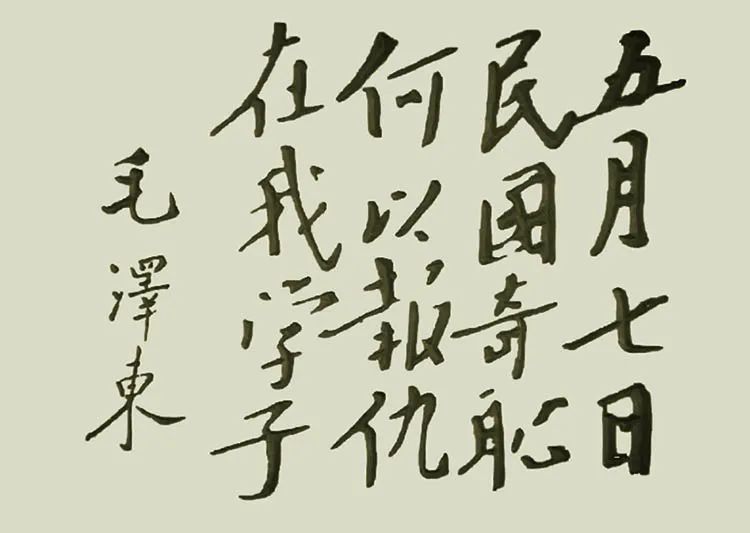 五月七日
民國奇恥
何以報仇
在我学子
毛澤東